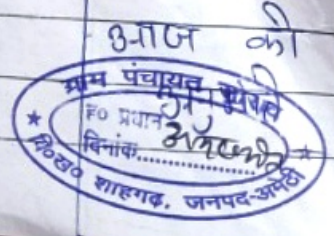 आज की
ग्राम पंचायत
ह0 प्रधान
दिनांक..............
वि०ख० शाहगढ़, जनपद-अमेठी